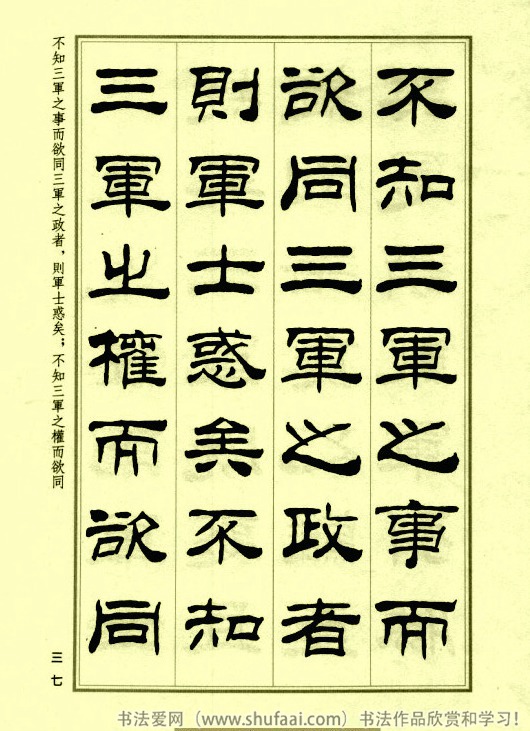 不知三軍之事而
欲同三軍之政者
則軍士惑矣不知
三軍之權而欲同
不知三軍之事而欲同三軍之政者，則軍士惑矣；不知三軍之權而欲同
三七
书法爱网（www.shufaai.com）书法作品欣赏和学习！